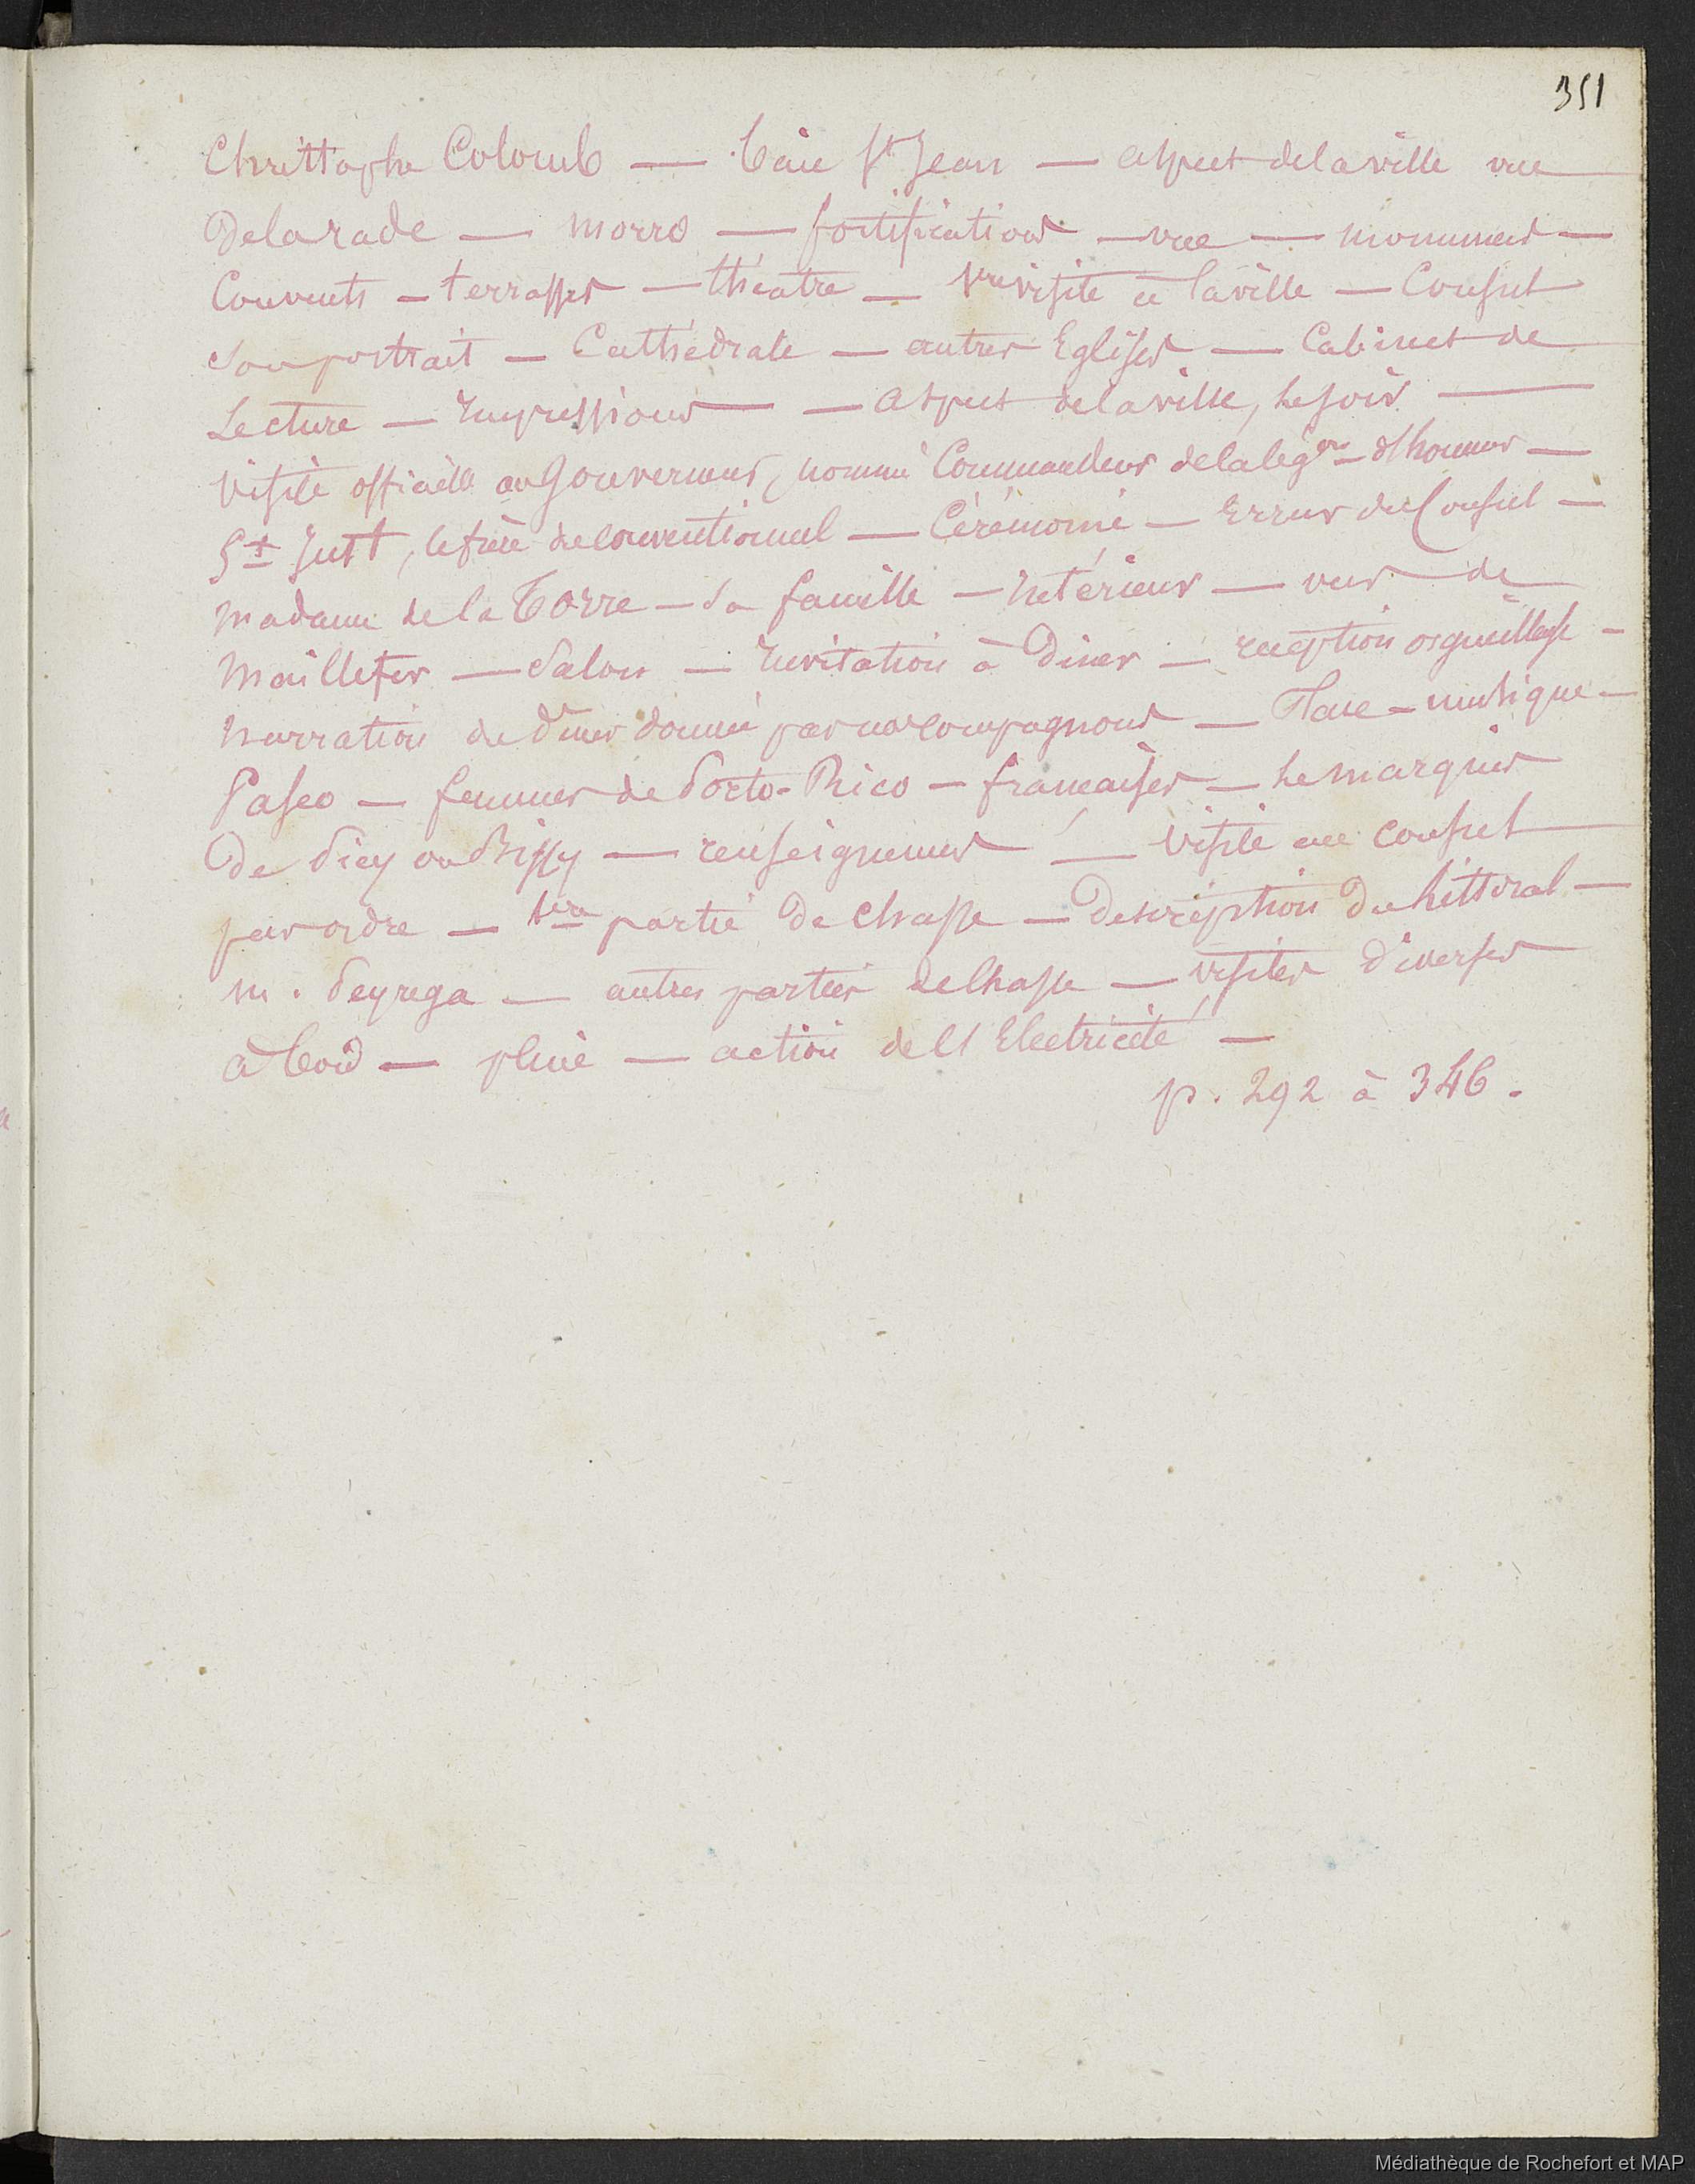 351
Christophe Colomb — baie St Jean — aspect de la ville vue
De la rade — Morro — fortifications — vue — monumens —
Couvents — terrasses — théatre — 1re visite à la ville — Consul
Son portrait — Cathédrale — autres Eglises — Cabinet de
Lecture — Impressions — — aspect de la ville, le soir —
Visite officielle au Gouverneur, nommé Commandeur de la légon d'honneur —
St Just, le frère du conventionnel — Cérémonie — Erreur du Consul —
Madame de la Torre — Sa famille — Intérieur — vers de
Maillefer — Salon — Invitation à Diner — reception orgueilleuse —
Narration du diner donnée par nos compagnons — Place — musique —
Paseo — femmes de Porto-Rico — francaises — Le marquis
De Picy ou Bissy — renseignemens — Visite au consul
par ordre — 1ere partie De Chasse — Description Du Littoral —
M. Peyrega — autres parties de Chasse — visites diverses
à bord — pluie — action de l'Electricité —
p. 292 à 346.
Médiathèque de Rochefort et MAP